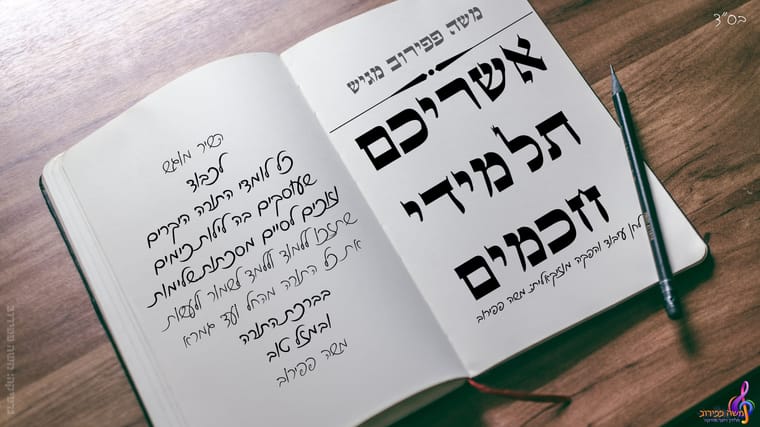 בס״ד
משה פפירוב מגיש
אשריכם
תלמידי
חכמים
לחן עיבוד והפקה מוזיקאלית: משה פפירוב
השיר מוגש
לכבוד
כל לומדי התורה היקרים
שעוסקים בה לילות כימים
וזוכים לסיים מסכתות שלימות
שתזכו ללמוד וללמד לשמור ולעשות
את כל התורה מהחל ועד גמרא
בברכת התורה
ובמזל טוב
משה פפירוב
משה פפירוב